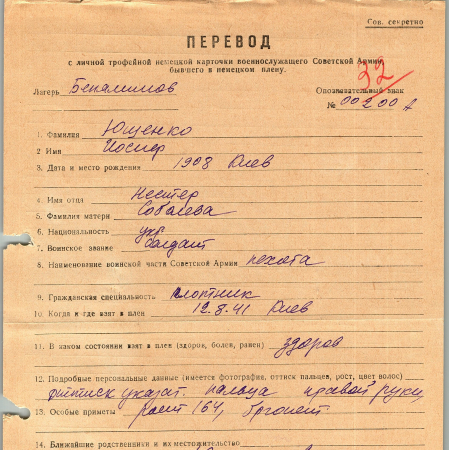 Сов. секретно
ПЕРЕВОД
с личной трофейной немецкой карточки военнослужащего Советской Армии,
бывшего в немецком плену.
32
Лагерь
Опознавательный знак
№ 00200 А
1. Фамилия Ющенко
2 Имя Иосиф
3. Дата и место рождения 1908 Киев
4. Имя отца Нестер
5. Фамилия матери Соболева
6. Национальность укр
7. Воинское звание солдат
8. Наименование воинской части Советской Армии пехота
9. Гражданская специальность плотник
10. Когда и где взят в плен 12.8.41 Киев
11. В каком состоянии взят в плен (здоров, болен, ранен) здоров
12. Подробные персональные данные (имеется фотография, оттиск пальцев, рост, цвет волос)
оттиск указат. пальца правой руки,
13. Особые приметы рост 164,
14. Ближайшие родственники и их местожительство